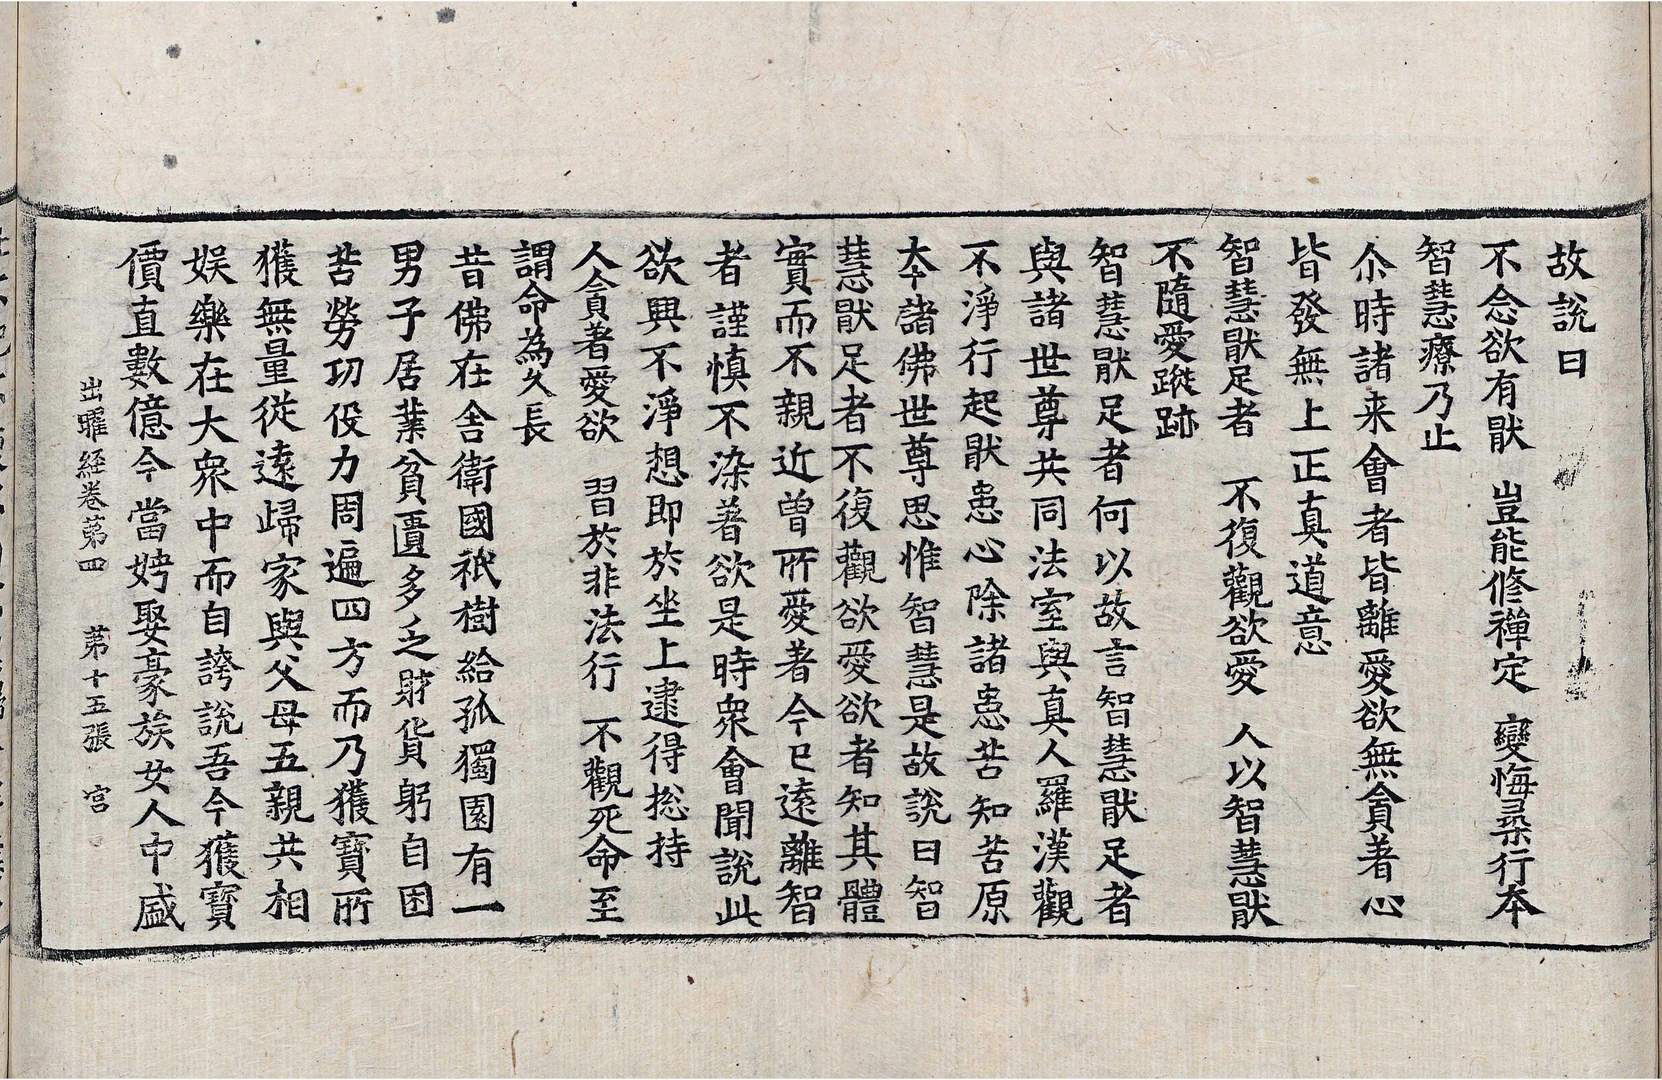 故說曰
不念欲有猒　豈能修禪定　變悔桑行本
智慧療乃止
尒時諸来會者皆離愛欲無貪著心
皆發無上正真道意
智慧猒足者　不復觀欲愛　人以智慧猒
不隨愛蹤跡
智慧猒足者何以故言智慧猒足者
與諸世尊共同法室與真人羅漢觀
不淨行起猒患心除諸患苦知苦原
本諸佛世尊思惟智慧是故說曰智
慧猒足者不復觀欲愛欲者知其體
實而不親近曾所愛著今已遠離智
者謹慎不染著欲是時衆會聞說此
欲興不淨想即於坐上逮得捴持
人貪著愛欲　習於非法行　不觀死命至
謂命為久長
昔佛在舍衛國祇樹給孤獨園有一
男子居業貧匱多乏財貨躬自困
苦勞功役力周遍四方而乃獲寶所
獲無量從遠歸家與父母五親共相
娛樂在大衆中而自誇說吾今獲寶
價直數億今當娉娶豪族女人中盛
出曜経卷苐四　苐十五張　宮